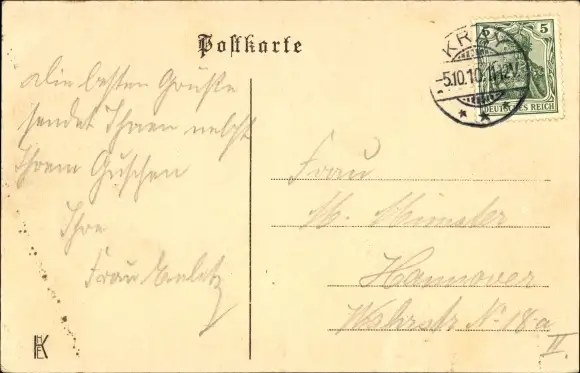 Postkarte
KRAY
5.10.10. 11-12V.
5
DEUTSCHES REICH
Die besten Grüße
sendet Ihnen nebst
Ihrem Guschen
Ihre
Frau
Frau
M. Münster
Hannover
N. 18a
II.